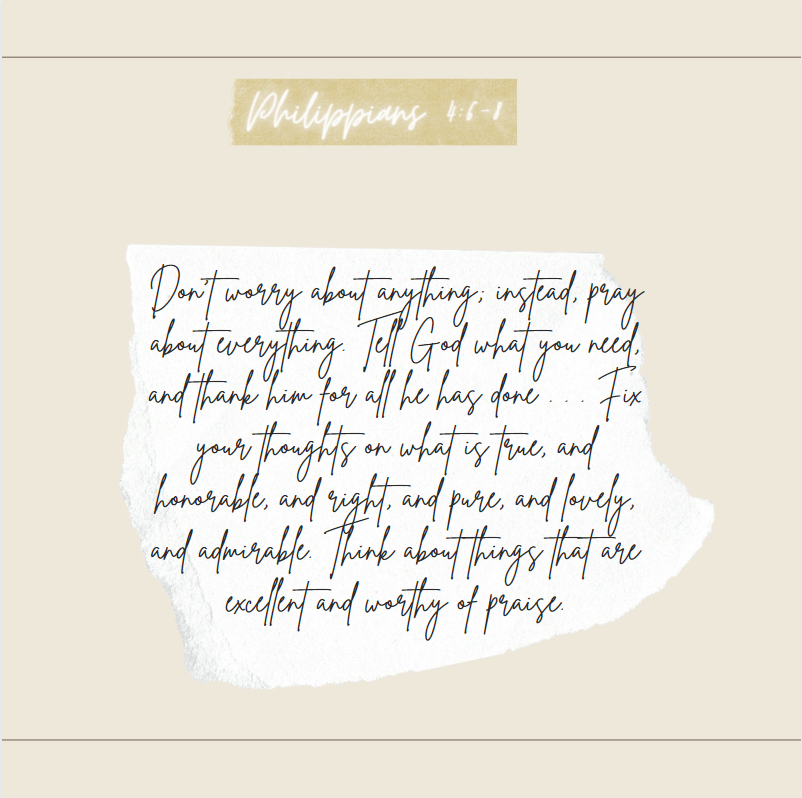 Philippians 4:6-8
Don't worry about anything; instead, pray
about everything. Tell God what you need,
and thank him for all he has done . . . Fix
your thoughts on what is true, and
honorable, and right, and pure, and lovely,
and admirable. Think about things that are
excellent and worthy of praise.